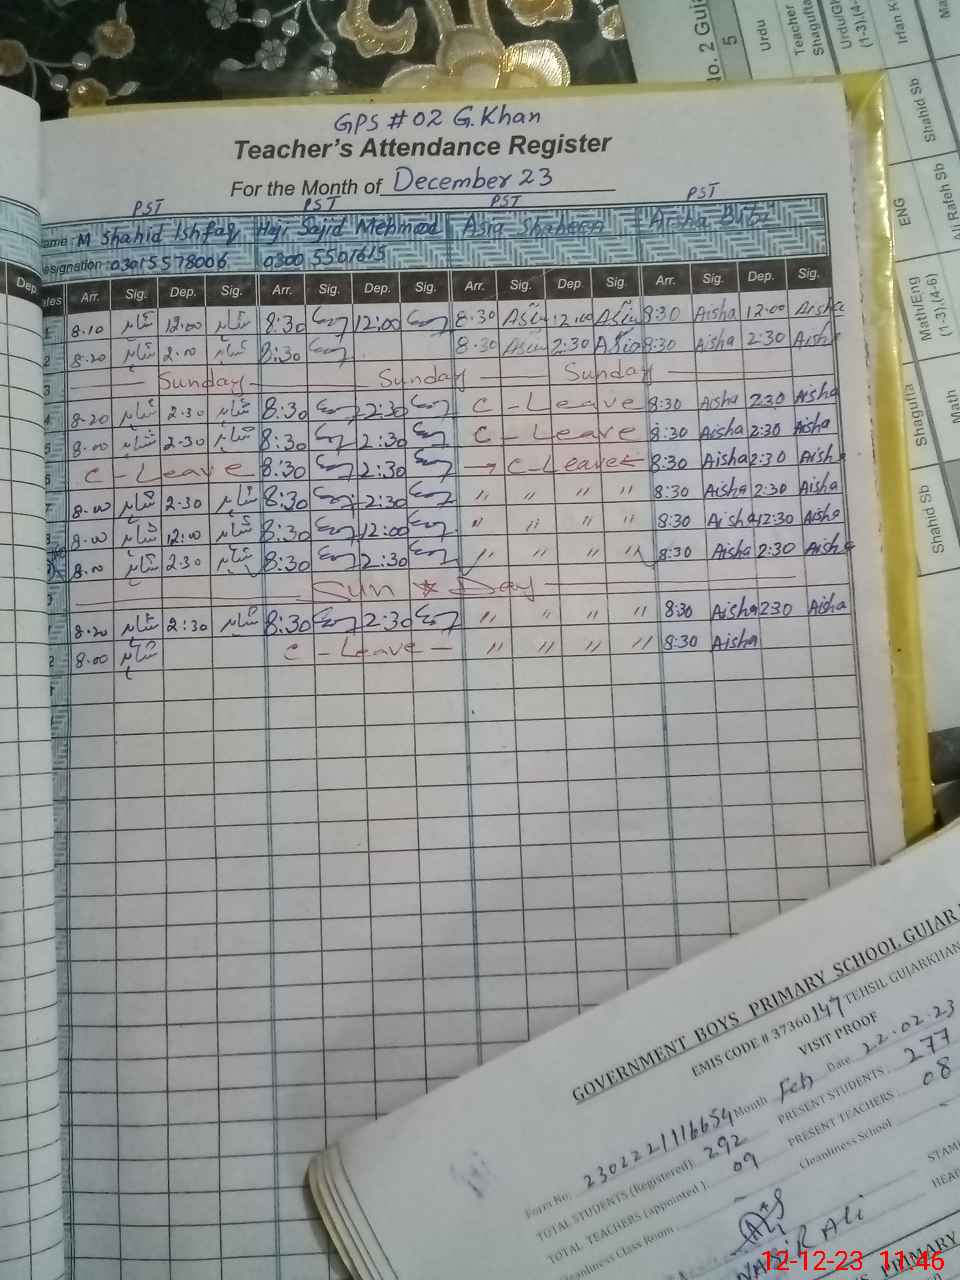 GPS #02 G.Khan
Teacher's Attendance Register
For the Month of December 23
PST PST PST PST
ame: M Shahid Ishfaq Haji Sajid Mehmood Asia Shaheen
esignation: 03015578006 0300 5501615
Dep. ates Arr. Sig. Dep. Sig. Arr. Sig. Dep. Sig. Arr. Sig. Dep. Sig. Arr. Sig. Dep. Sig.
1 8.10 12.00 8:30 12:00 8.30 Asia 12.00 Asia 8:30 Aisha 12:00 Aisha
2 8.20 2.00 8:30 8.30 Asia 2:30 Asia 8:30 Aisha 2:30 Aish
3 Sunday Sunday Sunday
4 8.20 2.30 8:30 2:30 C - Leave 8:30 Aisha 2:30 Aisha
5 8.00 2.30 8:30 2:30 C - Leave 8:30 Aisha 2:30 Aisha
6 C - Leave 8:30 2:30 → C-Leave ← 8:30 Aisha 2:30 Aish
8.00 2.30 8:30 2:30 " " " " 8:30 Aisha 2:30 Aisha
8.00 12.00 8:30 12:00 " " " " 8:30 Aisha 12:30 Aisha
8.00 2.30 8:30 2:30 " " " " 8:30 Aisha 2:30 Aisha
Sun * Day
8.20 2:30 8:30 2:30 " " " " 8:30 Aisha 2:30 Aisha
2 8.00 C - Leave - " " " " 8:30 Aisha
No. 2 Guja
5
Urdu
Teacher
Shagufta
Urdu/G
(1-3),(4-
Irfan K
Ma
ENG
Ali Rateh Sb
Shahid Sb
Math/Eng
(1-3),(4-6)
Shagufta
Math
Shahid Sb
GOVERNMENT BOYS PRIMARY SCHOOL GUJAR
EMIS CODE # 37360147 TEHSIL GUJARKHAN
VISIT PROOF
Form No: 2302221116654 Month Feb Date 22.02.23
TOTAL STUDENTS (Registered) 292 PRESENT STUDENTS. 277
TOTAL TEACHERS (appointed). 09 PRESENT TEACHERS 08
Cleanliness Class Room Cleanliness School
STAM
HEA
Ali
PRIMARY
12-12-23 11:46